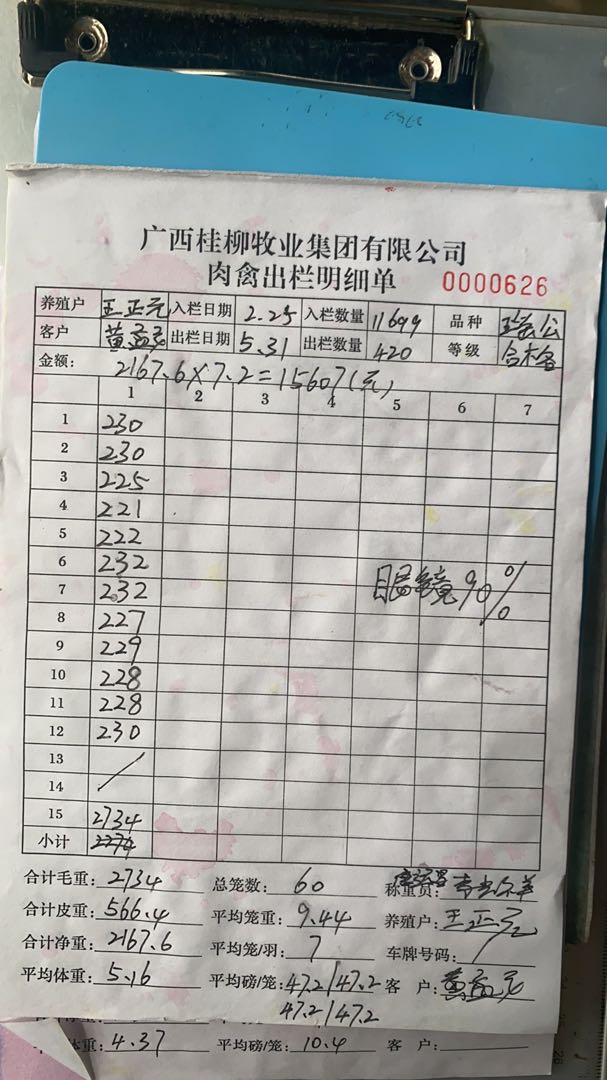 广西桂柳牧业集团有限公司
肉禽出栏明细单 0000626
养殖户 王正元 入栏日期 2.25 入栏数量 11699 品种 公
客户 黄孟 出栏日期 5.31 出栏数量 420 等级 合格
金额: 2167.6×7.2=15607(元)
1 2 3 4 5 6 7
1 230
2 230
3 225
4 221
5 222
6 232
7 232
眼镜90%
8 227
9 229
10 228
11 228
12 230
13 /
14
15 2734
小计 2274
合计毛重: 2734 总笼数: 60 称重员:
合计皮重: 566.4 平均笼重: 9.44 养殖户: 王正元
合计净重: 2167.6 平均笼/羽: 7 车牌号码: /
平均体重: 5.16 平均磅/笼: 47.2/47.2 客 户: 黄孟
47.2/47.2
体重: 4.37 平均磅/笼: 10.4 客 户: